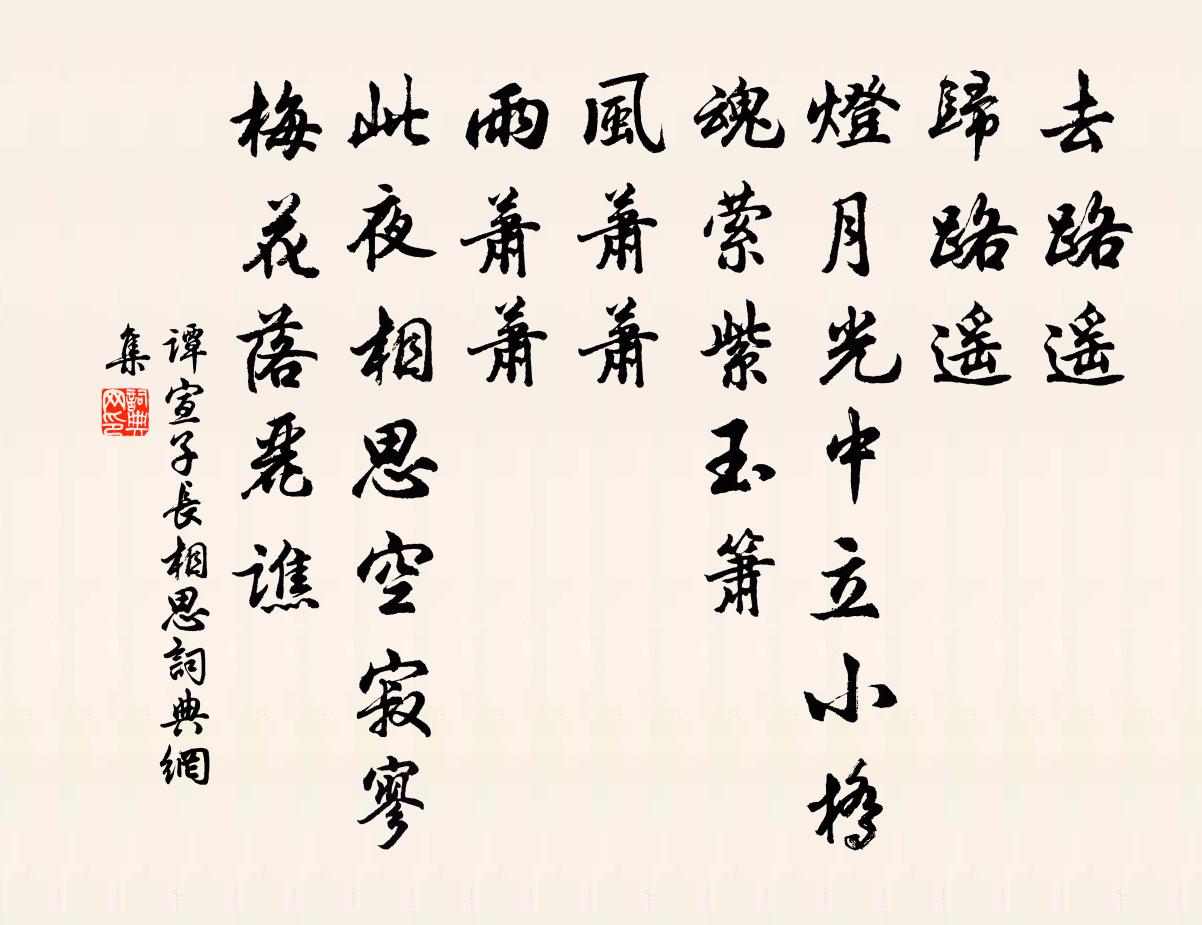 去路遙
歸路遙
燈月光中立小橋
魂縈紫玉簫
風蕭蕭
雨蕭蕭
此夜相思空寂寥
梅花落麗譙
譚宣子長相思詞典網
集
詞典
网印